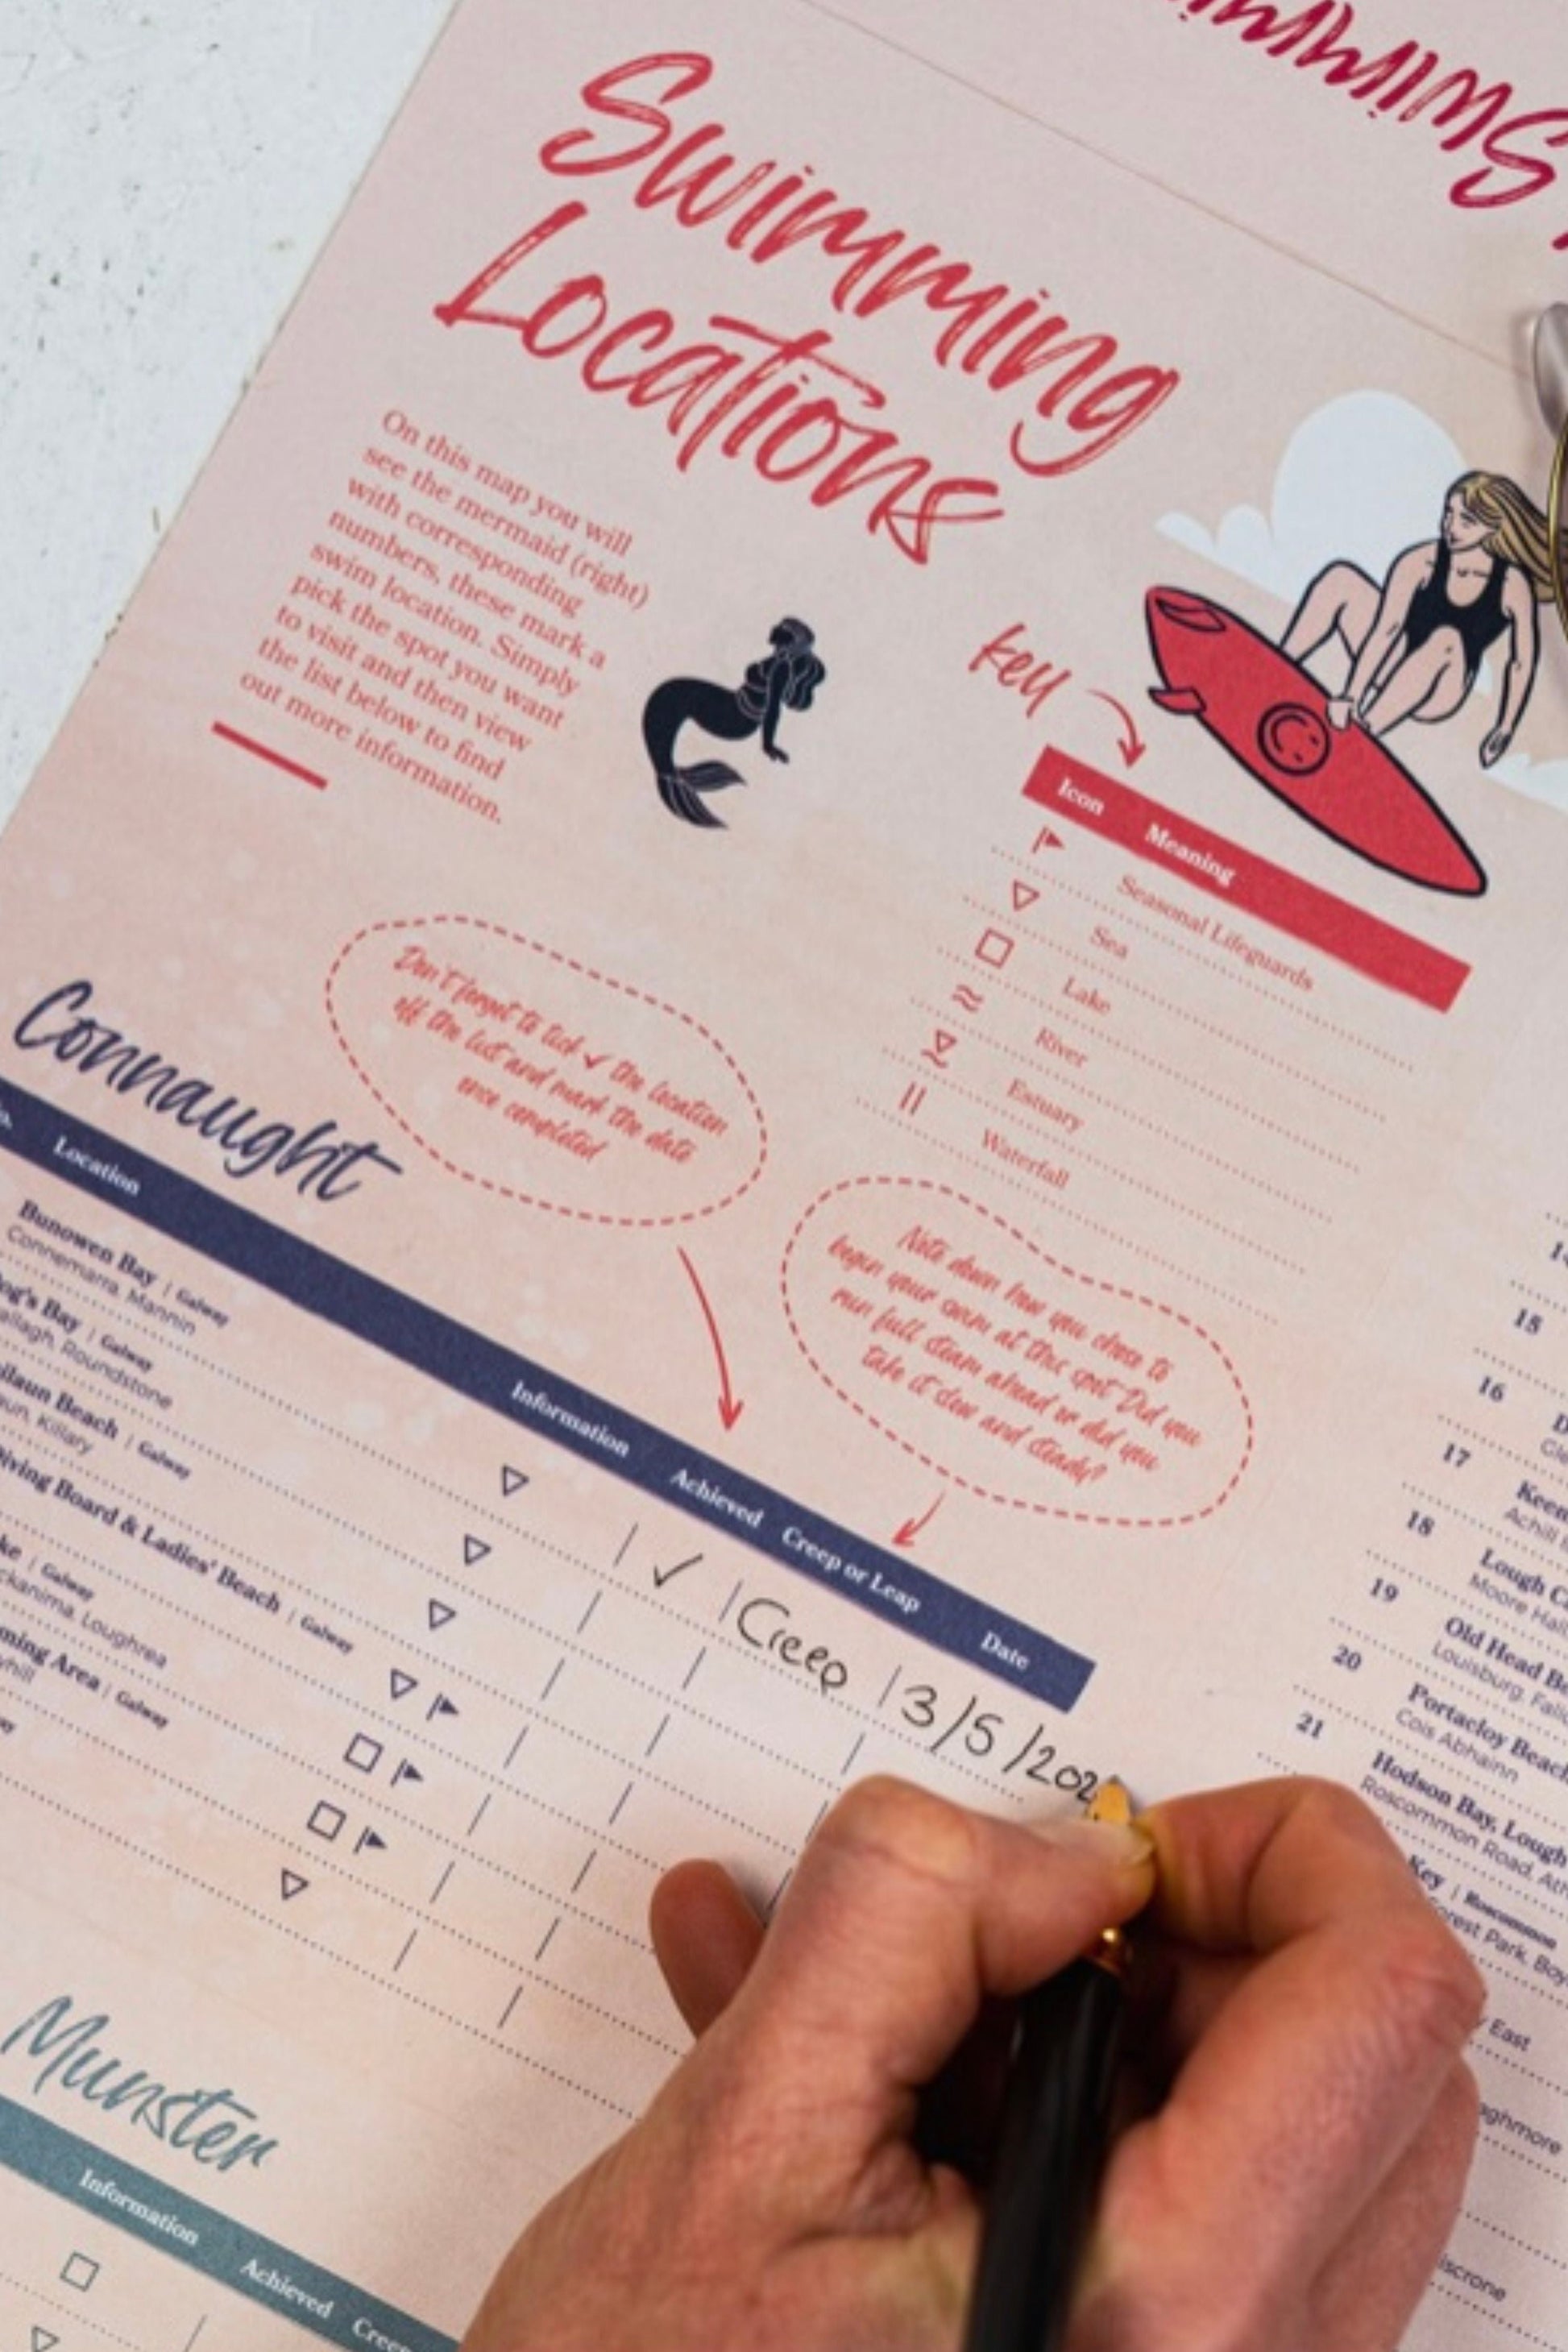 Swimming
Swimming
Locations
On this map you will
see the mermaid (right)
with corresponding
numbers, these mark a
swim location. Simply
pick the spot you want
to visit and then view
the list below to find
out more information.
key
Icon Meaning
Seasonal Lifeguards
Sea
Lake
River
Estuary
Waterfall
Don't forget to tick ✓ the location
off the list and mark the date
once completed
Note down how you chose to
begin your swim at this spot? Did you
run full steam ahead or did you
take it slow and steady?
Connaught
Location Information Achieved Creep or Leap Date
Bunowen Bay | Galway
Connemarra, Mannin
✓ Creep 3/5/202
Bay | Galway
Roundstone
Beach | Galway
Killary
Diving Board & Ladies' Beach | Galway
| Galway
Loughrea
Area | Galway
Munster
Information Achieved
15
16
17
18
19
20
21
Achill
Lough
Moore Hall
Old Head
Louisburg,
Portacloy Beach
Cois Abhainn
Hodson Bay, Lough
Roscommon Road,
Key | Roscommon
Forest Park,
East